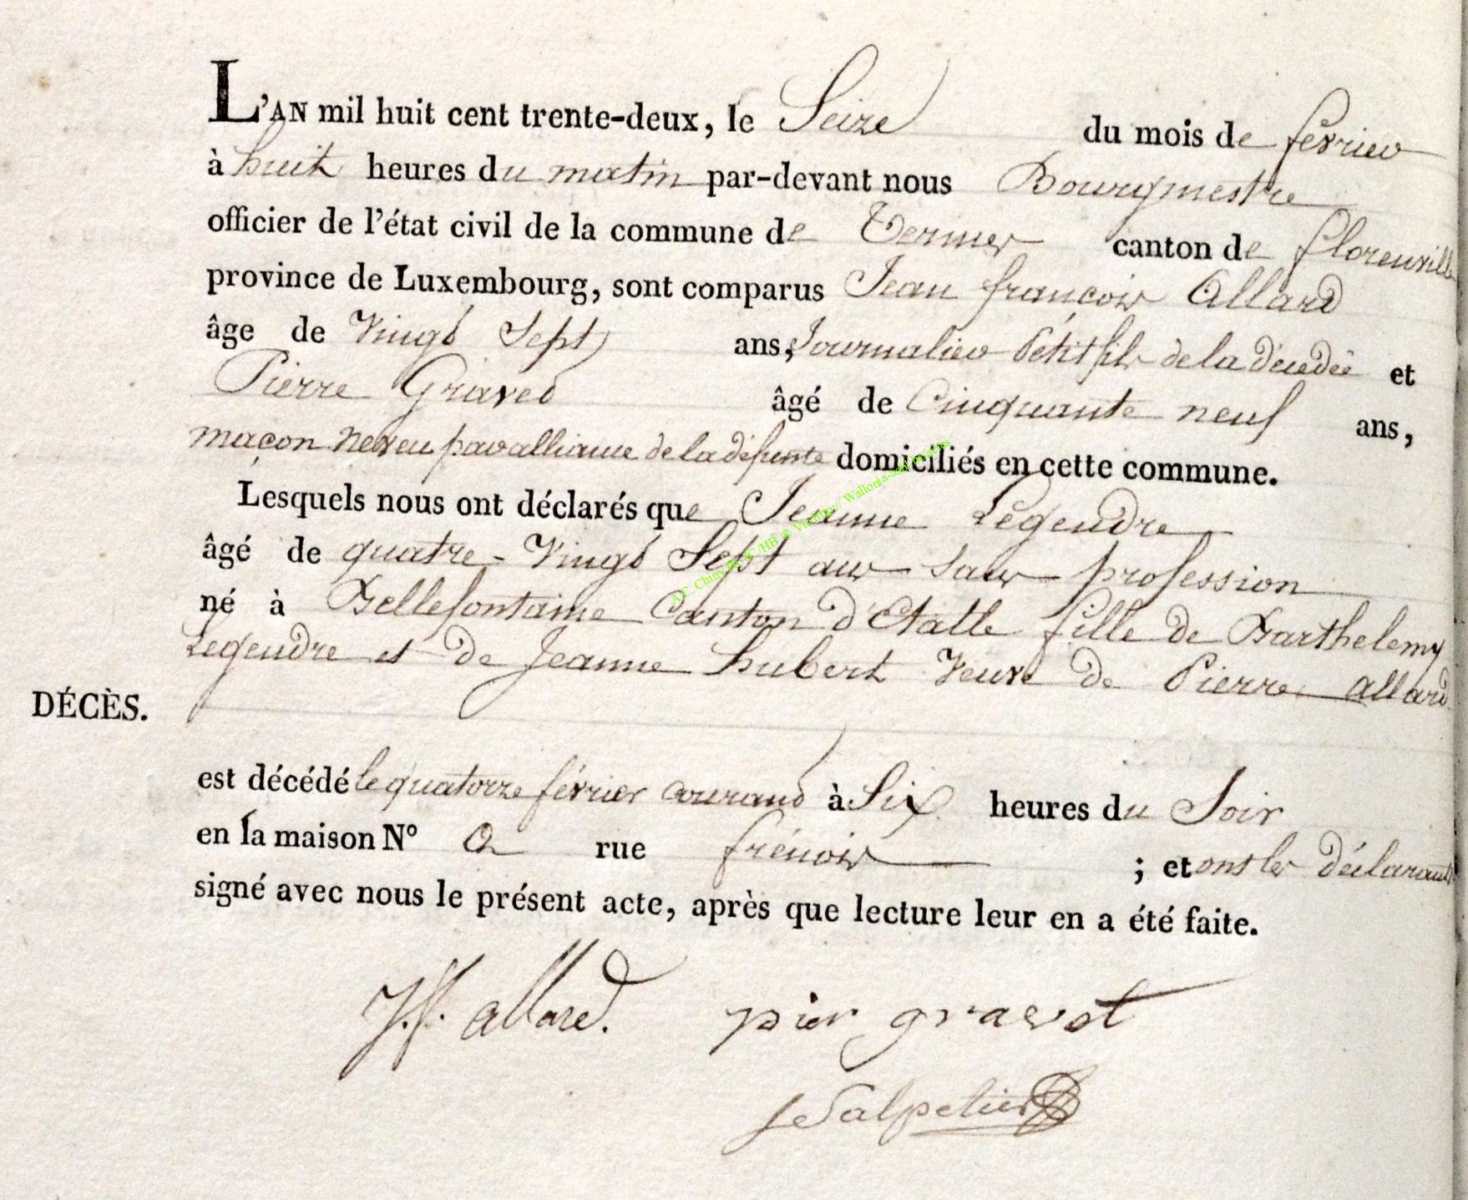 L'AN mil huit cent trente-deux, le Seize du mois de fevrier
à huit heures du matin par-devant nous Bourgmestre
officier de l'état civil de la commune de Termes canton de florenville
province de Luxembourg, sont comparus Jean françois Allard
âge de Vingt Sept ans, Journalier Pétit fils de la décédée et
Pierre Gravet âgé de Cinquante neuf ans,
maçon neveu par alliance de la défunte domiciliés en cette commune.
Lesquels nous ont déclarés que Jeanne Legendre
âgé de quatre-Vingt Sept ans sans profession
né à Bellefontaine Canton d'Etalle fille de Barthelemy
Legendre et de Jeanne hubert Veuve de Pierre allard
DÉCÈS.
est décédé le quatorze février courant à Six heures du Soir
en la maison N° 2 rue frénois ; et ont les déclarants
signé avec nous le présent acte, après que lecture leur en a été faite.
J.f. allard. pier gravot